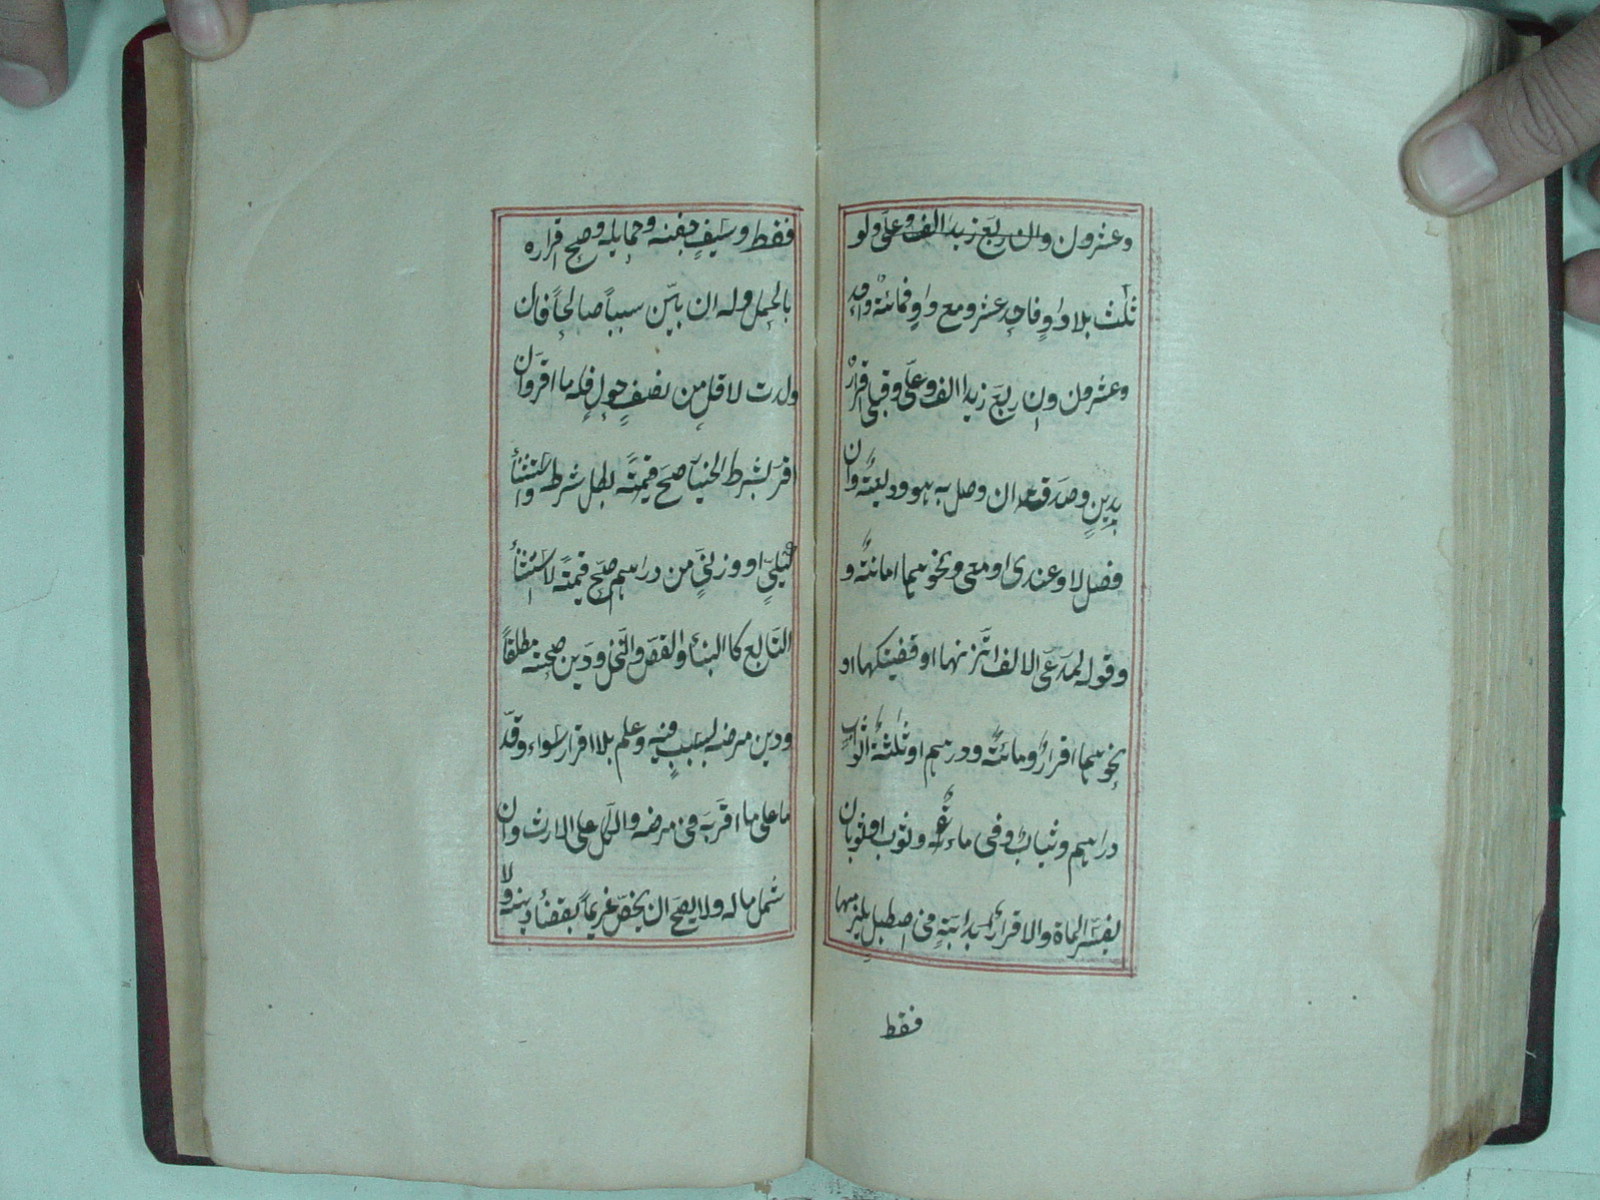 وعشرون وان ربع زيد الف وعلى ولو
ثلث بلا واو فاحد عشر ومع واو فمائة واحد
وعشرون وان ربع زيد الف وعلى وقبلى اقرار
بدين وصدق ان وصل به هو وديعة وان
فصل لا وعندى او معى ونحوهما امانة و
وقوله لمدعى الالف اتزنها او قضيتكها او
نحوهما اقرار ومائة ودرهم او ثلثة اثواب
دراهم وثياب وفى ماءة وثوب او ثوبان
يفسر الماة والاقرار بدابة فى اصطبل يلزمها
فقط
فقط وسيف جفنه وحمايله وصح اقراره
بالحمل وله ان بين سببا صالحا فان
ولدت لاقل من نصف حول فله ما اقر وان
اقر بشرط الخيار صح قيمة بطل شرط واستثناء
كيلى او وزنى من دراهم صح قيمة لا استثناء
التابع كالبناء والفص والنخل ودين صحته مطلقا
ودين مرضه بسبب فيه وعلم بلا اقرار سواء وقدّ
ما على ما اقر به فى مرضه والكل على الارث وان
شمل ماله ولا يصح ان يخص غريما بقضاء دينه ولا